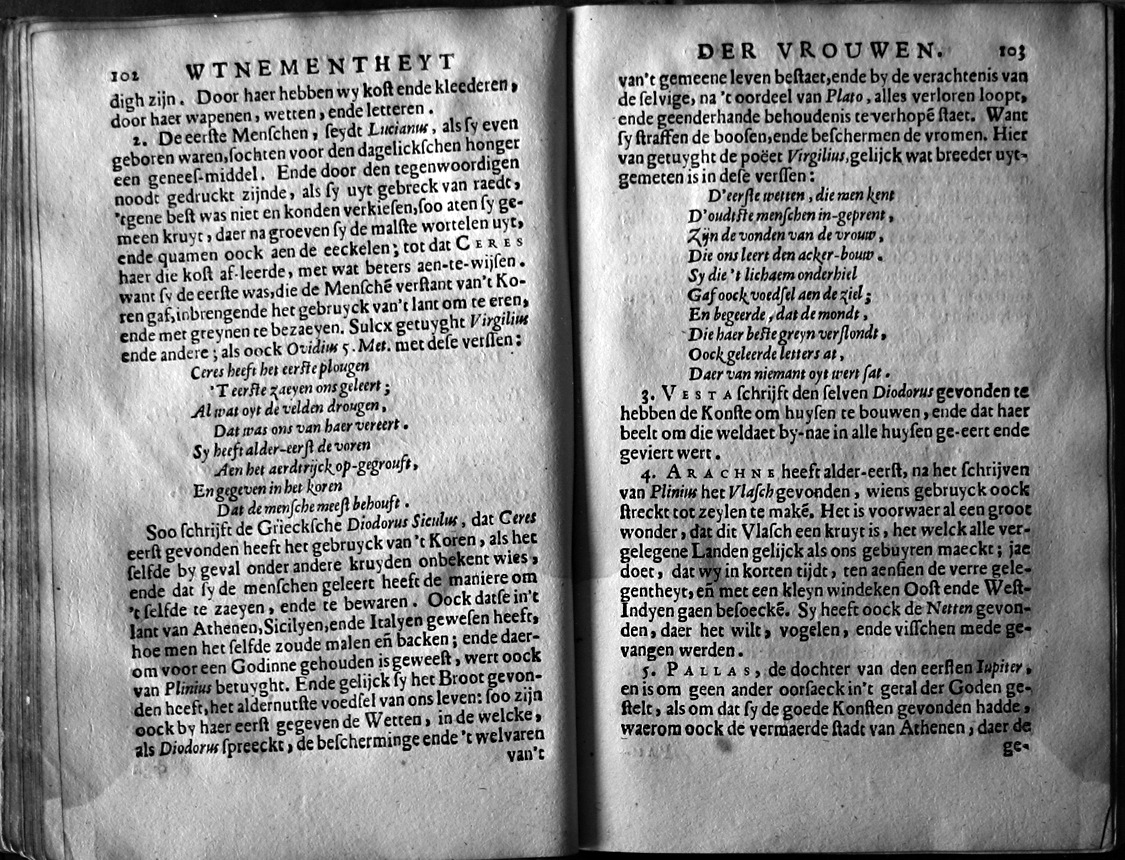 102 WTNEMENTHEYT
digh zijn. Door haer hebben wy kost ende kleederen,
door haer wapenen, wetten, ende letteren.
2. De eerste Menschen, seydt Lucianus, als sy even
geboren waren, sochten voor den dagelickschen honger
een genees-middel. Ende door den tegenwoordigen
noodt gedruckt zijnde, als sy uyt gebreck van raedt,
'tgene best was niet en konden verkiesen, soo aten sy ge-
meen kruyt, daer na groeven sy de malste wortelen uyt,
ende quamen oock aen de eeckelen; tot dat CERES
haer die kost af-leerde, met wat beters aen-te-wijsen.
want sy de eerste was, die de Menschē verstant van't Ko-
ren gaf, inbrengende het gebruyck van't lant om te eren,
ende met greynen te bezaeyen. Sulcx getuyght Virgilius
ende andere; als oock Ovidius 5. Met. met dese verssen:
Ceres heeft het eerste plougen
'T eerste zaeyen ons geleert;
Al wat oyt de velden drougen,
Dat was ons van haer vereert.
Sy heeft alder-eerst de voren
Aen het aerdtrijck op-gegrouft,
En gegeven in het koren
Dat de mensche meest behouft.
Soo schrijft de Griecksche Diodorus Siculus, dat Ceres
eerst gevonden heeft het gebruyck van't Koren, als het
selfde by geval onder andere kruyden onbekent wies,
ende dat sy de menschen geleert heeft de maniere om
't selfde te zaeyen, ende te bewaren. Oock datse in't
lant van Athenen, Sicilyen, ende Italyen gewesen heeft,
hoe men het selfde zoude malen eñ backen; ende daer-
om voor een Godinne gehouden is geweest, wert oock
van Plinius betuyght. Ende gelijck sy het Broot gevon-
den heeft, het aldernutste voedsel van ons leven: soo zijn
oock by haer eerst gegeven de Wetten, in de welcke,
als Diodorus spreeckt, de bescherminge ende 't welvaren
van't
DER VROUWEN. 103
van't gemeene leven bestaet, ende by de verachtenis van
de selvige, na 't oordeel van Plato, alles verloren loopt,
ende geenderhande behoudenis te verhopē staet. Want
sy straffen de boosen, ende beschermen de vromen. Hier
van getuyght de poëet Virgilius, gelijck wat breeder uyt-
gemeten is in dese verssen:
D'eerste wetten, die men kent
D'oudtste menschen in-geprent,
Zijn de vonden van de vrouw,
Die ons leert den acker-bouw.
Sy die 't lichaem onderhiel
Gaf oock voedsel aen de ziel;
En begeerde, dat de mondt,
Die haer beste greyn verslondt,
Oock geleerde letters at,
Daer van niemant oyt wert sat.
3. VESTA schrijft den selven Diodorus gevonden te
hebben de Konste om huysen te bouwen, ende dat haer
beelt om die weldaet by-nae in alle huysen ge-eert ende
geviert wert.
4. ARACHNE heeft alder-eerst, na het schrijven
van Plinius het Vlasch gevonden, wiens gebruyck oock
streckt tot zeylen te makē. Het is voorwaer al een groot
wonder, dat dit Vlasch een kruyt is, het welck alle ver-
gelegene Landen gelijck als ons gebuyren maeckt; jae
doet, dat wy in korten tijdt, ten aensien de verre gele-
gentheyt, eñ met een kleyn windeken Oost ende West-
Indyen gaen besoeckē. Sy heeft oock de Netten gevon-
den, daer het wilt, vogelen, ende visschen mede ge-
vangen werden.
5. PALLAS, de dochter van den eersten Iupiter,
en is om geen ander oorsaeck in't getal der Goden ge-
stelt, als om dat sy de goede Konsten gevonden hadde,
waerom oock de vermaerde stadt van Athenen, daer de
ge-